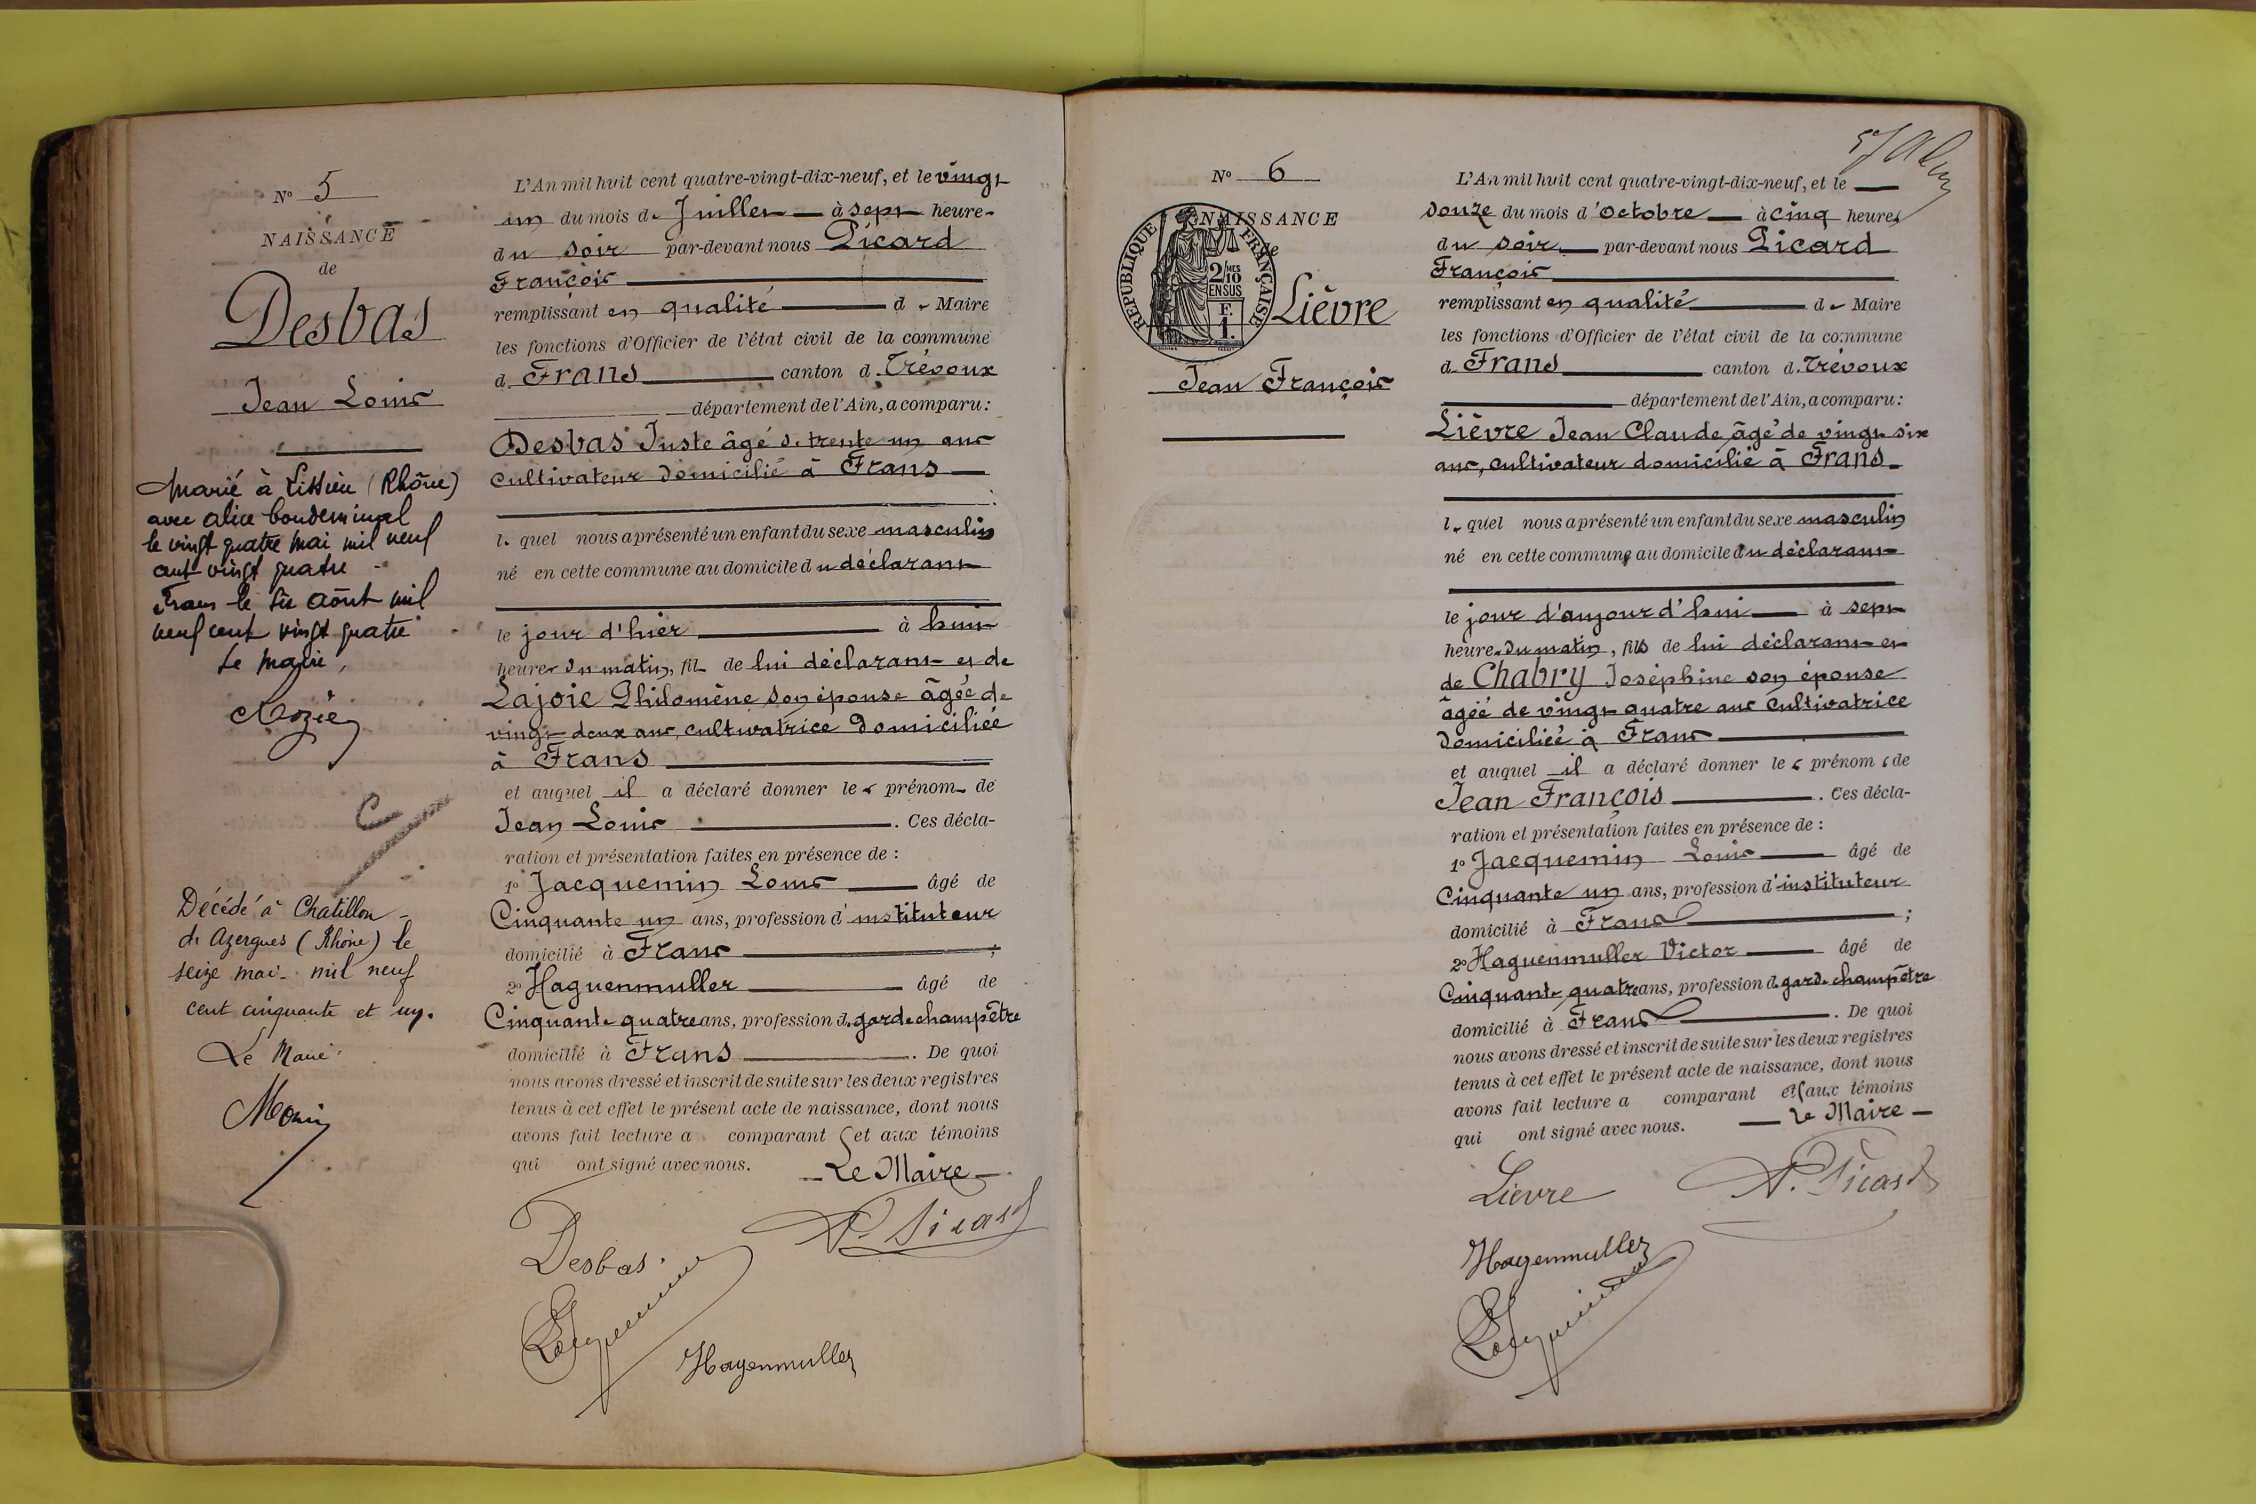 N° 5
NAISSANCE
de
Desbas
Jean Louis
Marié à Lissieu (Rhône)
avec Alice
le vingt quatre mai mil neuf
cent vingt quatre
Frans le six Août mil
neuf cent vingt quatre
Le Maire,
Décédé à Chatillon
d'Azergues (Rhône) le
seize mai mil neuf
cent cinquante et un.
Le Maire
L'An mil huit cent quatre-vingt-dix-neuf, et le vingt
un du mois de Juillet à sept heures
du soir par-devant nous Picard
François
remplissant en qualité de Maire
les fonctions d'Officier de l'état civil de la commune
d. Frans canton d. Trévoux
département de l'Ain, a comparu :
Desbas Juste âgé de trente un ans
Cultivateur domicilié à Frans
le quel nous a présenté un enfant du sexe masculin
né en cette commune au domicile du déclarant
le jour d'hier à huit
heures du matin, fils de lui déclarant et de
Lajoie Philomène son épouse âgée de
vingt deux ans, cultivatrice domiciliée
à Frans
et auquel il a déclaré donner les prénoms de
Jean Louis . Ces décla-
ration et présentation faites en présence de :
1° Jacquemin Louis âgé de
Cinquante un ans, profession d'instituteur
domicilié à Frans ;
2° Haguenmuller âgé de
Cinquante quatre ans, profession de garde champêtre
domicilié à Frans . De quoi
nous avons dressé et inscrit de suite sur les deux registres
tenus à cet effet le présent acte de naissance, dont nous
avons fait lecture a comparant et aux témoins
qui ont signé avec nous. Le Maire
Desbas.
P. Picard
Jacquemin
Hagenmuller
N° 6
NAISSANCE
de
RÉPUBLIQUE FRANÇAISE
2/10 MES
EN SUS
F.
1.
Lièvre
Jean François
L'An mil huit cent quatre-vingt-dix-neuf, et le
douze du mois d'octobre à cinq heures
du soir par-devant nous Picard
François
remplissant en qualité de Maire
les fonctions d'Officier de l'état civil de la commune
d. Frans canton d. Trévoux
département de l'Ain, a comparu :
Lièvre Jean Claude, âgé de vingt six
ans, cultivateur domicilié à Frans
le quel nous a présenté un enfant du sexe masculin
né en cette commune au domicile du déclarant
le jour d'aujourd'hui à sept
heures du matin, fils de lui déclarant et
de Chabry Joséphine son épouse
âgée de vingt quatre ans Cultivatrice
domiciliée à Frans
et auquel il a déclaré donner les prénoms de
Jean François . Ces décla-
ration et présentation faites en présence de :
1° Jacquemin Louis âgé de
Cinquante un ans, profession d'instituteur
domicilié à Frans ;
2° Haguenmuller Victor âgé de
Cinquante quatre ans, profession de garde champêtre
domicilié à Frans . De quoi
nous avons dressé et inscrit de suite sur les deux registres
tenus à cet effet le présent acte de naissance, dont nous
avons fait lecture a comparant et aux témoins
qui ont signé avec nous. Le Maire
Lièvre
P. Picard
Hagenmuller
Jacquemin